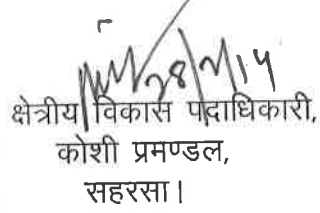 28/7/14
क्षेत्रीय विकास पदाधिकारी,
कोशी प्रमण्डल,
सहरसा।